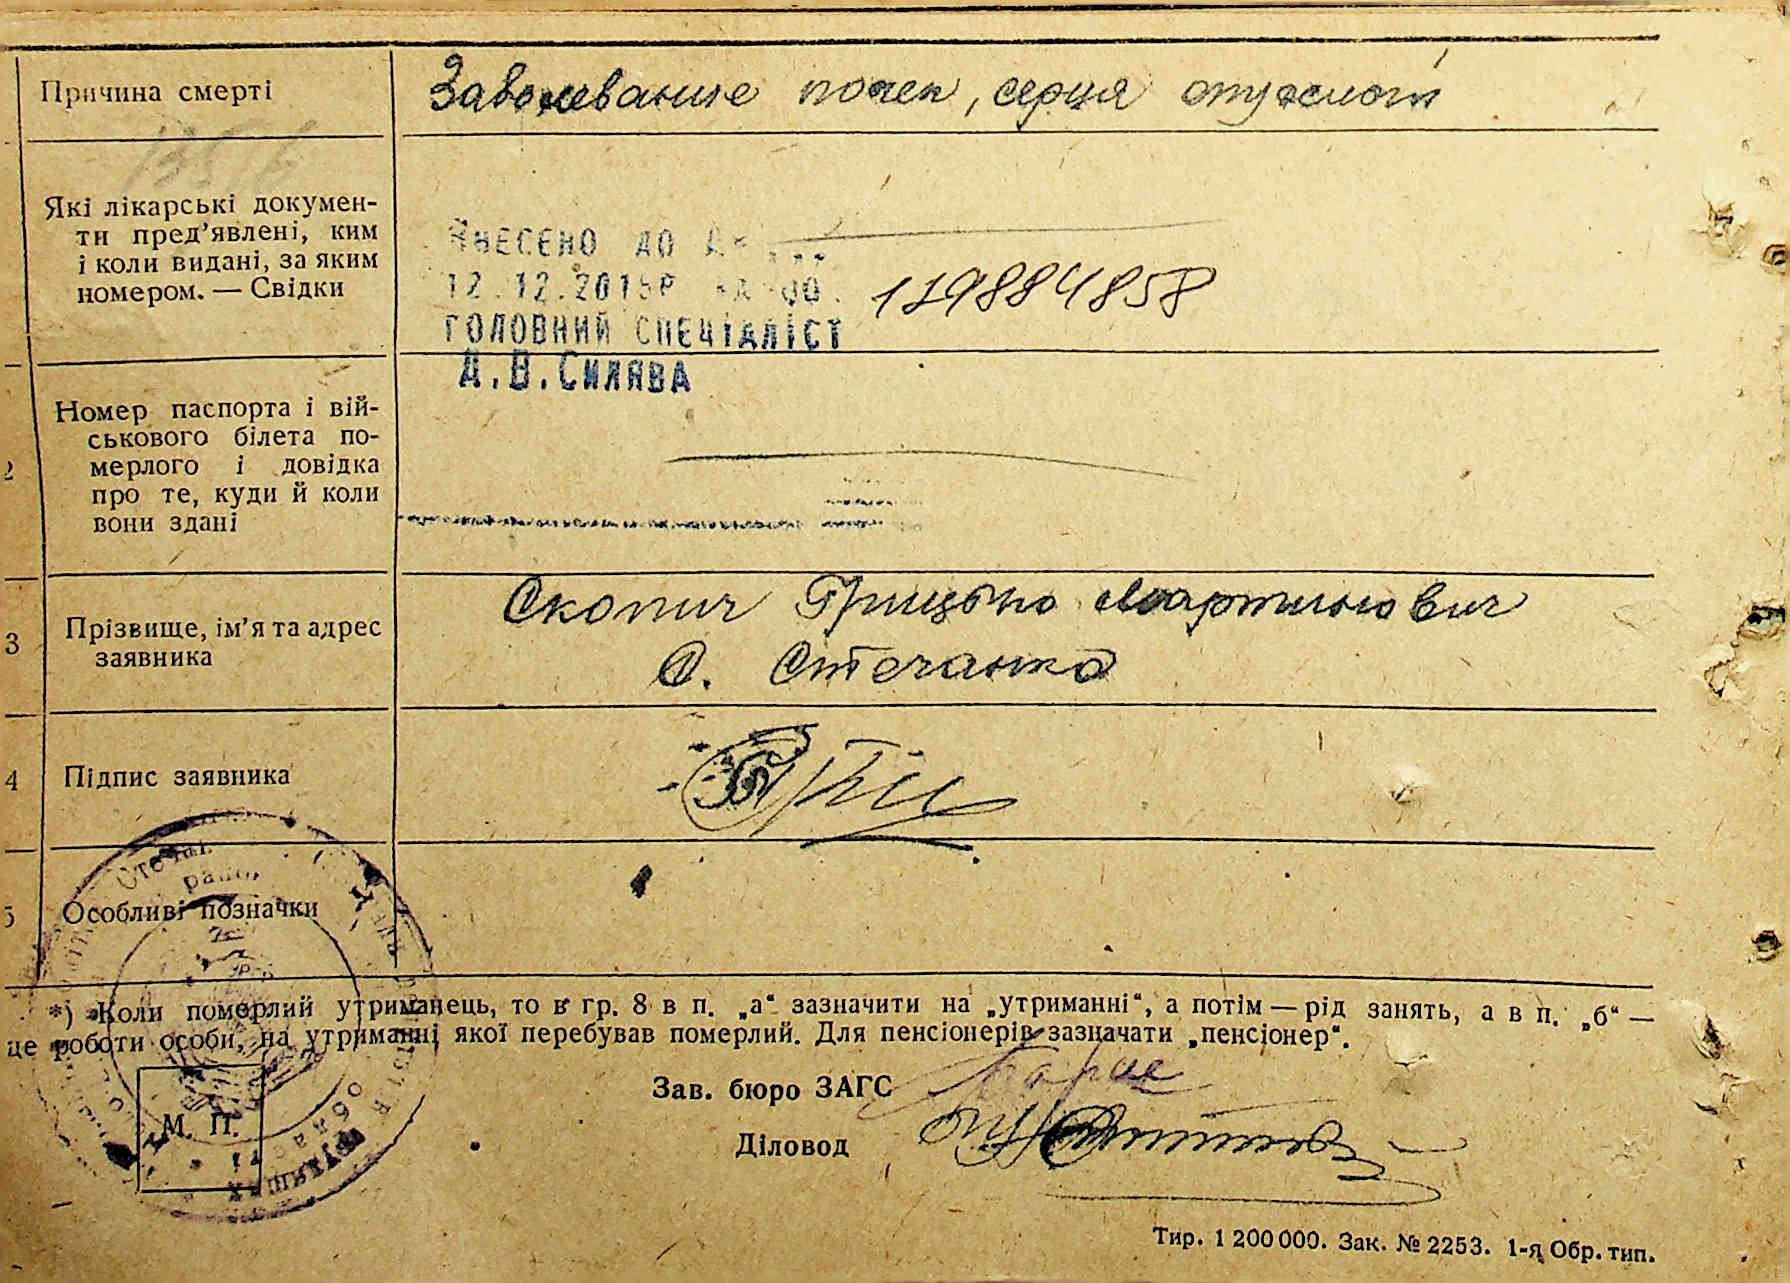 Причина смерті
Заболевание почек, серця опухлость
Які лікарські докумен-
ти пред’явлені, ким
і коли видані, за яким
номером. — Свідки
ВНЕСЕНО ДО
12.12.2015Р
119884858
ГОЛОВНИЙ СПЕЦІАЛІСТ
Д.В.СИЛЯВА
2
Номер паспорта і вій-
ськового білета по-
мерлого і довідка
про те, куди й коли
вони здані
3
Прізвище, ім’я та адрес
заявника
Скопич Грицько Мартинович
С. Стечанка
4
Підпис заявника
5
Особливі позначки
*) Коли померлий утриманець, то в гр. 8 в п. „а“ зазначити на „утриманні“, а потім — рід занять, а в п. „б“ —
це роботи особи, на утриманні якої перебував померлий. Для пенсіонерів зазначати „пенсіонер“.
Зав. бюро ЗАГС
М. П.
Діловод
Тир. 1 200 000. Зак. № 2253. 1-я Обр. тип.